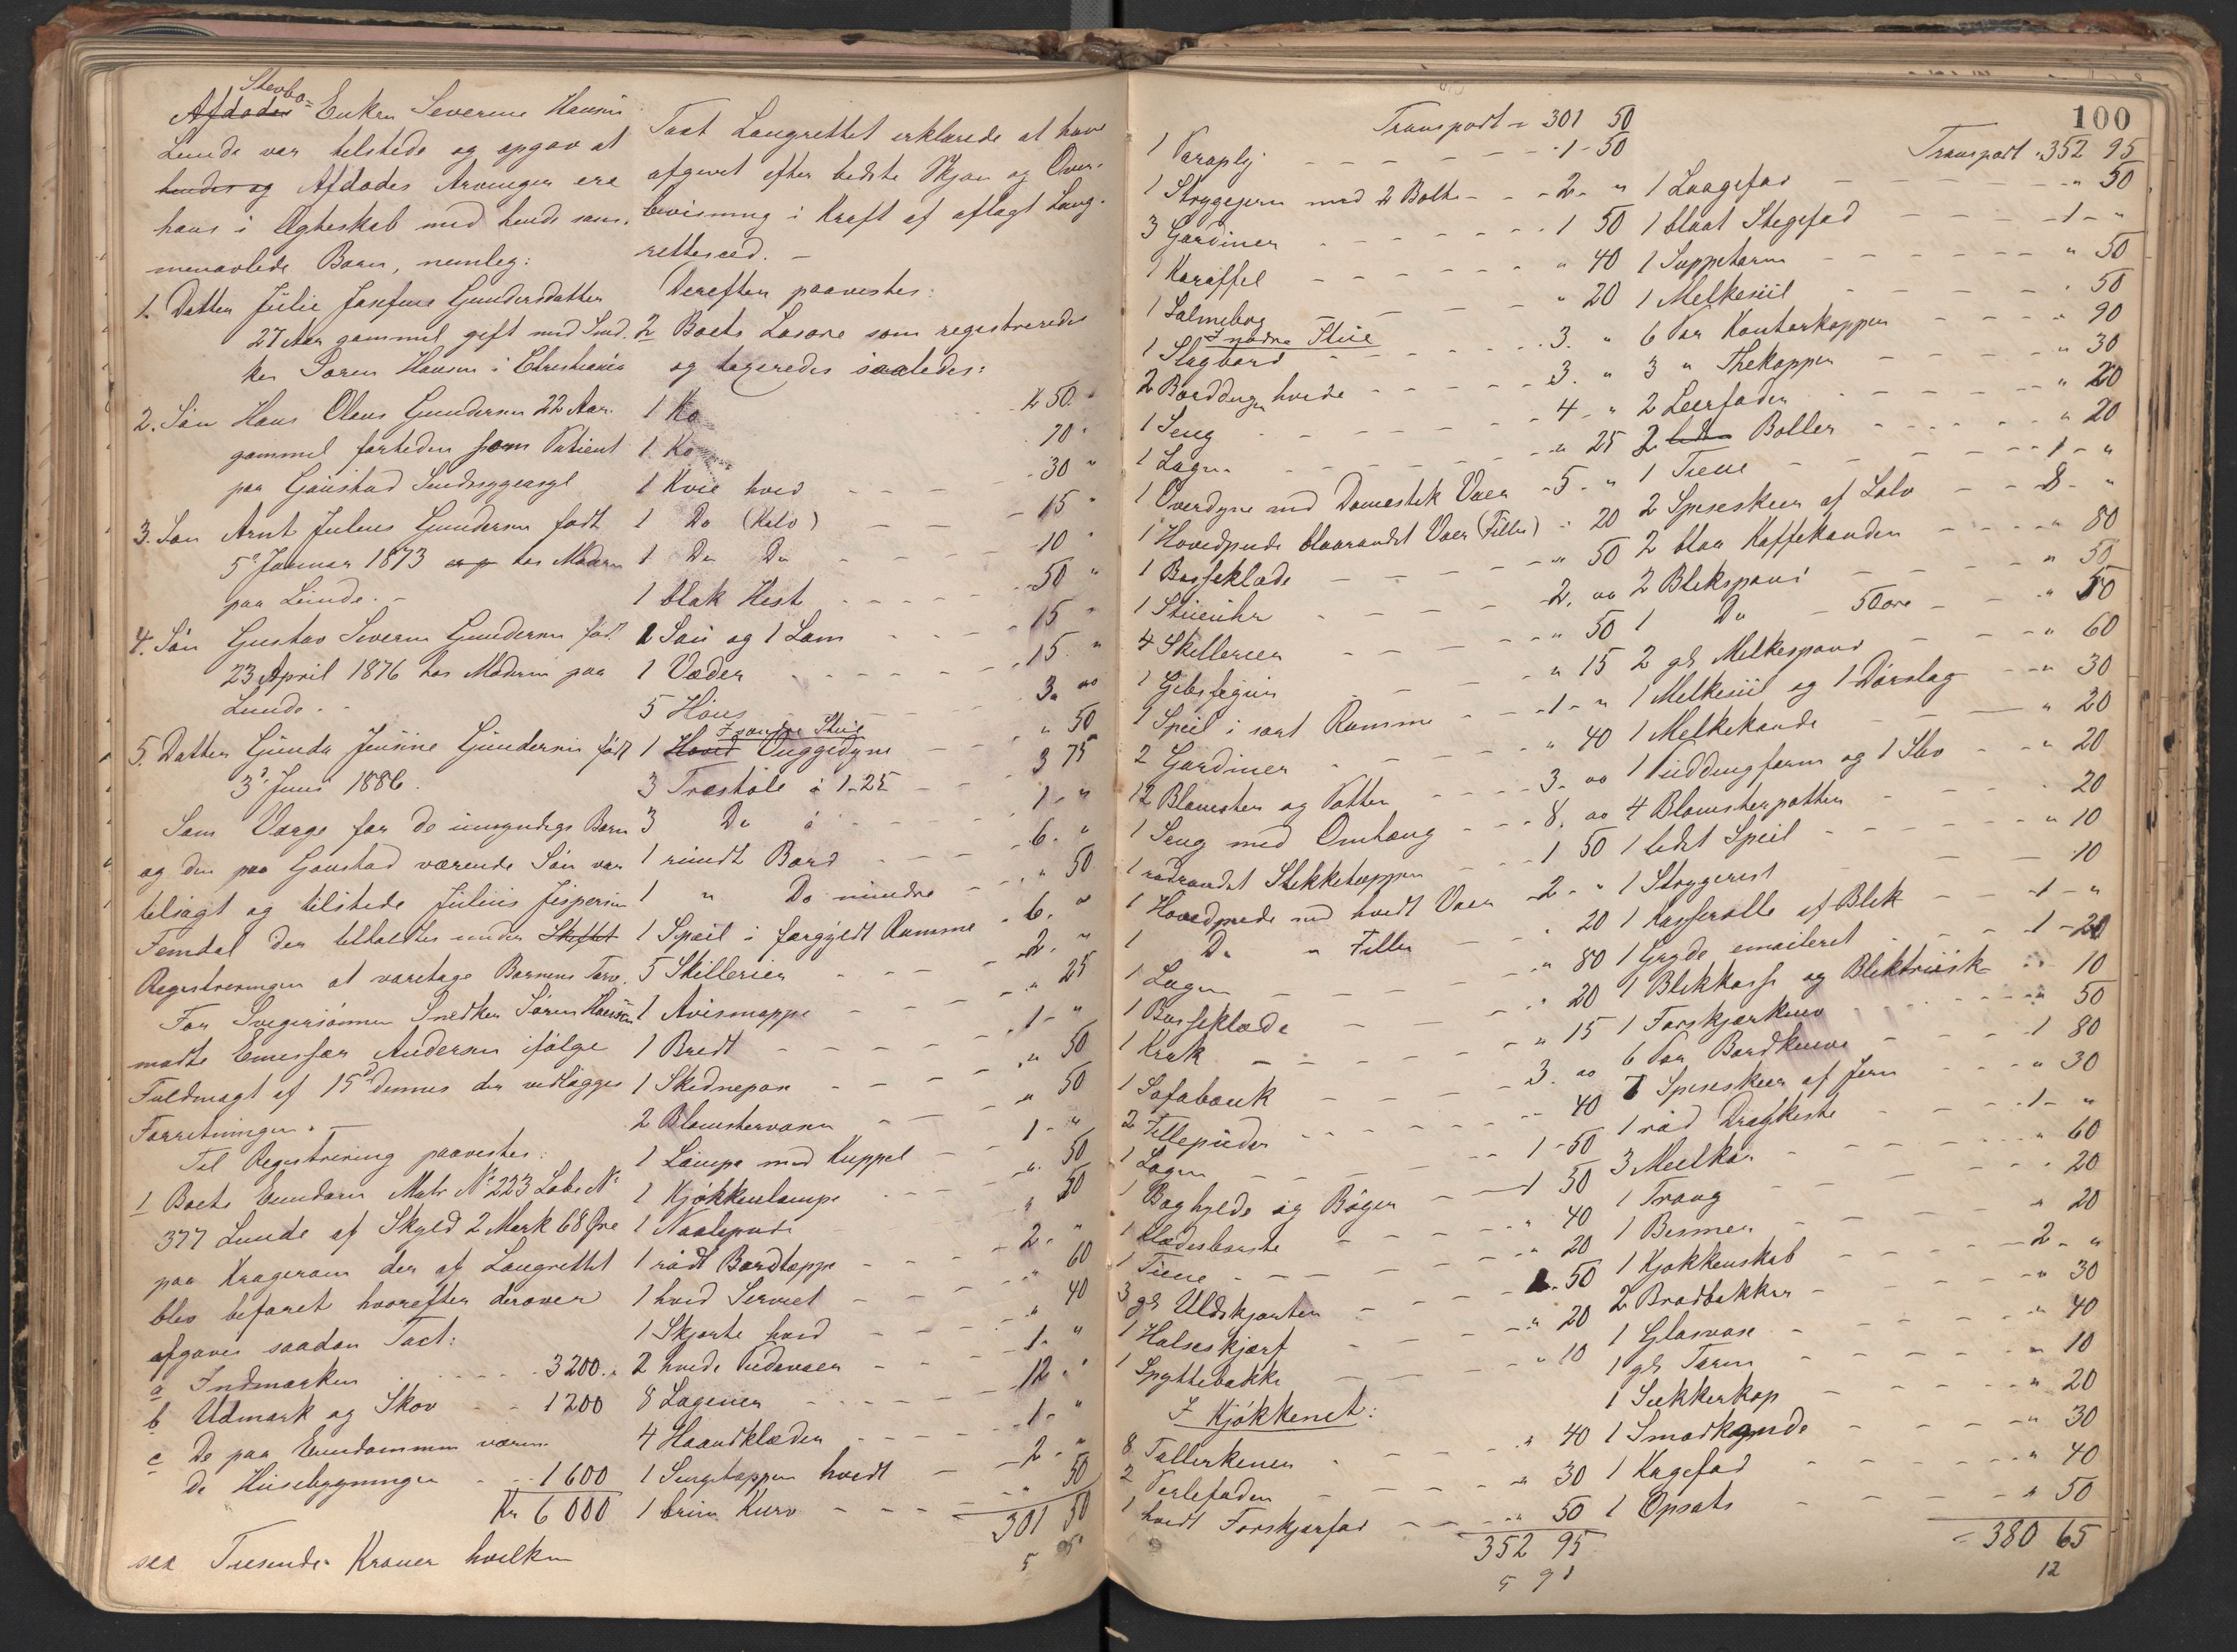 Stervbo=
Afdødes Enken Severine Hansen
Lunde var tilstede og opgav at
hendes og Afdødes Arvinger ere
hans i Ægteskab med hende sam-
menavlede Børn, nemlig:
1. Datter Julie Josefine Gundersdatter
27 Aar gammel gift med Sned-
ker Søren Hansen i Christiania
2. Søn Hans Olaus Gundersen 22 Aar
gammel fortiden som Patient
paa Gaustad Sindsygeasyl
3. Søn Arnt Julius Gundersen født
5 Januar 1873 hos Moderen
paa Lunde. -
4. Søn Gustav Severin Gundersen født
23 April 1876 hos Moderen paa
Lunde. -
5. Datter Gunda Jensine Gundersen født
3 Juni 1886.
Som Værge for de umyndige Børn
og den paa Gaustad værende Søn var
tilsagt og tilstede Julius Jespersen
Femdal der tilholdtes under Skiftet
Registreringen at varetage Børnenes Tarv.
For Svigersønnen Snedker Søren Hansen
mødte Ener Andersen ifølge
Fuldmagt af 15 dennes der vedlægges
Forretningen. -
Til Registrering paavistes:
1 Boets Eiendom Matr No 223 Løbe No
377 Lunde af Skyld 2 Mark 68 Øre
paa Kragerøen der af Laugrettet
blev befaret hvorefter derover
afgaves saadan Taxt:
a Indmarken 3200.
b Udmark og Skov 1200
c De paa Eiendommen væren-
de Husebygninger 1600
Kr 6000
sex Tusende Kroner hvilken
Taxt Laugrettet erklærede at have
afgivet efter bedste Skjøn og Over-
bevisning i Kraft af aflagt Laug-
retteseed. -
Derefter paavistes:
2 Boets Løsøre som registreredes
og taxeredes saaledes:
1 Ko 50 "
1 Ko 70 "
1 Kvie hvid 30 "
1 Do (Kalv) 15 "
1 Do Do 10 "
1 blak Hest 50 "
1 Sau og 1 Lam 15 "
1 Væder 15 "
5 Høns 3 "
I søndre Stue
1 Hoved Onggedyne " 50
3 Træstole à 1-25 3 75
3 Do à 1 - "
1 rundt Bord 6. "
1 " Do mindre " 50
1 Speil i forgyldt Ramme 6. "
5 Skillerier 2. "
1 Avismappe " 25
1 Bredt 1 - "
1 Skednepose " 50
2 Blomstervaser " 50
1 Lampe med Kuppel 1 - "
1 Kjøkkenlampe " 50
1 Naalepude " 50
1 rødt Bordtæppe 2. "
1 hvid Serviet " 60
1 Skjorte hvid " 40
2 hvide Pudevaer 1 - "
8 Lagener 12. "
4 Haandklæder 1 - "
1 Sengetæppe hvidt 2. "
1 brun Kurv " 50
301 50
Transport = 301 50
1 Paraply 1 - 50
1 Strygejern med 2 Bolte 2 - "
3 Gardiner 1 50
1 Karaffel " 40
1 Salmebog " 20
I nødre Stue
1 Slagbord 3. "
2 Borddug hvide 3. "
1 Seng 4 - "
1 Lagen " 25
1 Overdyne med Domestik Vaer 5 - "
1 Hovedpude blaarandet Vaer (Filler) " 20
1 Bosseklæde " 50
1 Stueuhr 2. "
4 Skillerier " 50
1 Gibsfigur " 15
1 Speil i sort Ramme 1 - "
2 Gardiner " 40
12 Blomster og Potter 3. "
1 Seng med Omhæng 8. "
1 rødrandet Stikketæppe 1 50
1 Hovedpude med hvidt Vaer 2 - "
1 Do " Filler " 20
1 Lagen " 80
1 Bosseklæde " 20
1 Krak " 15
1 Sofabænk 3. "
2 Fillepuder " 40
1 Lagen 1 - 50
1 Boghylde og Bøger 1 50
1 Klædesbørste " 40
1 Tiene " 20
3 gl Uldskjorter 50
1 Halseskjærf " 20
1 Spyttebakke " 10
I Kjøkkenet:
8 Tallerkener " 40
2 Perlefader " 30
1 hvidt Forskjærfad " 50
352 95
5 91
100
Transport 352 95
1 Laagefad " 50
1 blaat Stegefad 1 - "
1 Suppeterin " 50
1 Melkesiil " 50
6 Par Kontorkopper " 90
3 " Thekopper " 30
2 Leerfader " 20
2 Boller " 20
1 Tiene 1 - "
2 Spiseskeer af Sølv 8 - "
2 blaa Kaffekander " 80
2 Blekspand " 50
1 Do 50 øre " 50
2 gl Melkespand " 60
1 Melkesiil og 1 Dørslag " 30
1 Melkekande " 20
1 Puddingform og 1 Slev " 20
4 Blomsterpotter 20
1 lidet Speil " 10
1 Strygerist 10
1 Kasserolle af Blik 1 - "
1 Gryde emaileret 1 - 20
1 Blikkasse og Bliktriksk 10
1 Forskjærkniv " 50
6 Par Bordknive 1 80
7 Spiseskeer af Jern " 30
1 rød Dragkiste 1 - "
3 Meelkar " 60
1 Traug " 20
1 Bismer " 20
1 Kjøkkenskab 2 - "
2 Brødbakker " 30
1 Glasvase " 40
1 gl Terin " 10
1 Sukkerkop " 20
1 Smørkande " 30
1 Kagefad " 40
1 Opsats " 50
380 65
12